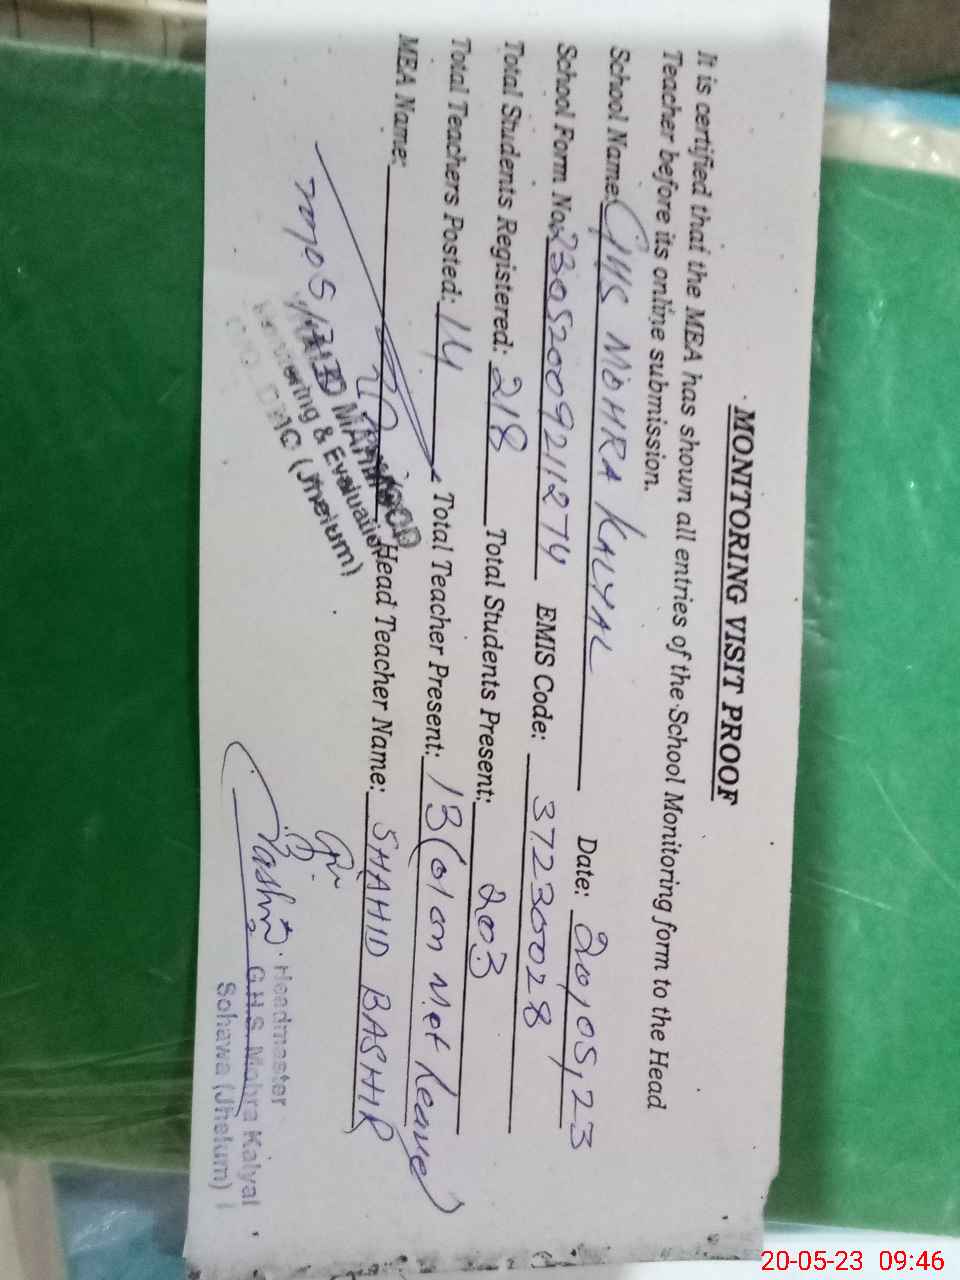 MONITORING VISIT PROOF
It is certified that the MEA has shown all entries of the School Monitoring form to the Head
Teacher before its online submission.
School Name: GHS MOHRA KALYAL Date: 20,05,23
School Form No. 2305200921274 EMIS Code: 37230028
Total Students Registered: 218 Total Students Present: 203
Total Teachers Posted: 14 Total Teacher Present: 13 (01 on Met Leave)
MEA Name: Head Teacher Name: SHAHID BASHIR
MAHMOOD
Monitoring & Evaluation
DMO (Jhelum)
Headmaster
G.H.S. Mohra Kalyal
Sohawa (Jhelum)
20-05-23 09:46